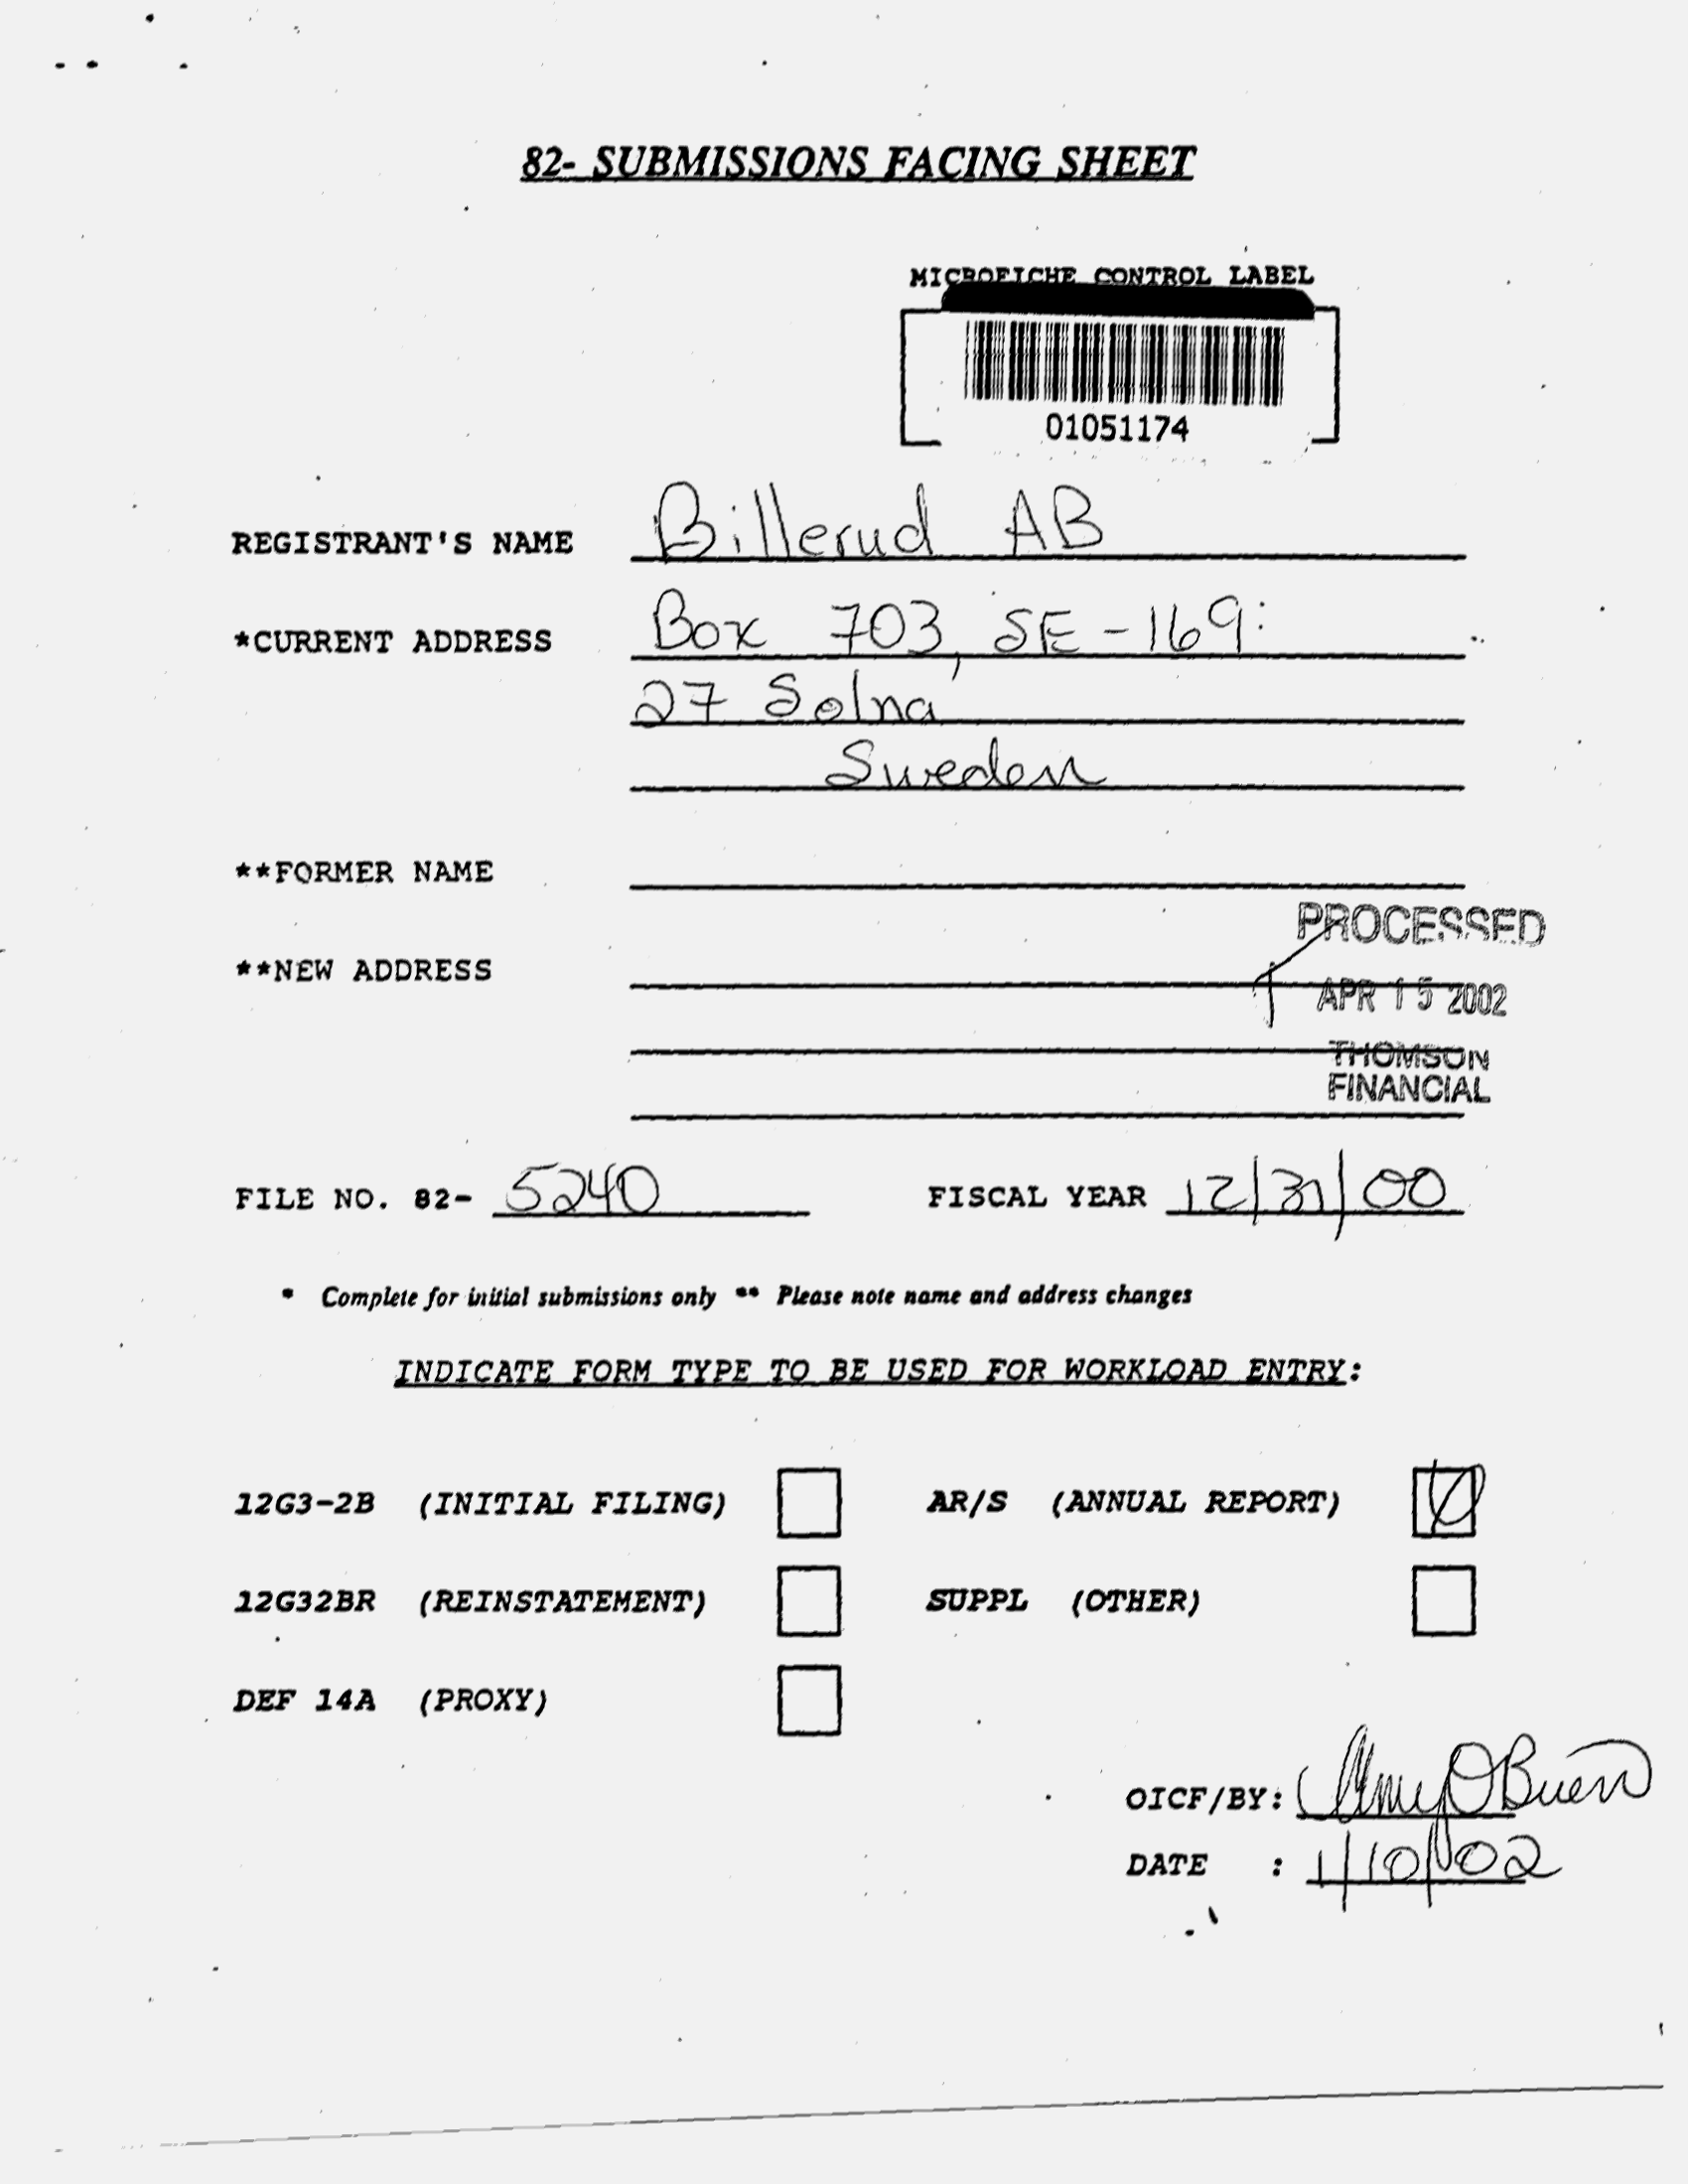 82- SUBMISSIONS FACING SHEET
MICROFICHE CONTROL LABEL
01051174
REGISTRANT'S NAME Billerud AB
*CURRENT ADDRESS Box 703, SE-169:
27 Solna
Sweden
**FORMER NAME
PROCESSED
**NEW ADDRESS
APR 15 2002
THOMSON
FINANCIAL
FILE NO. 82- 5240 FISCAL YEAR 12/31/00
* Complete for initial submissions only ** Please note name and address changes
INDICATE FORM TYPE TO BE USED FOR WORKLOAD ENTRY:
12G3-2B (INITIAL FILING) AR/S (ANNUAL REPORT)
12G32BR (REINSTATEMENT) SUPPL (OTHER)
DEF 14A (PROXY)
OICF/BY: Amy O'Brien
DATE : 1/10/02